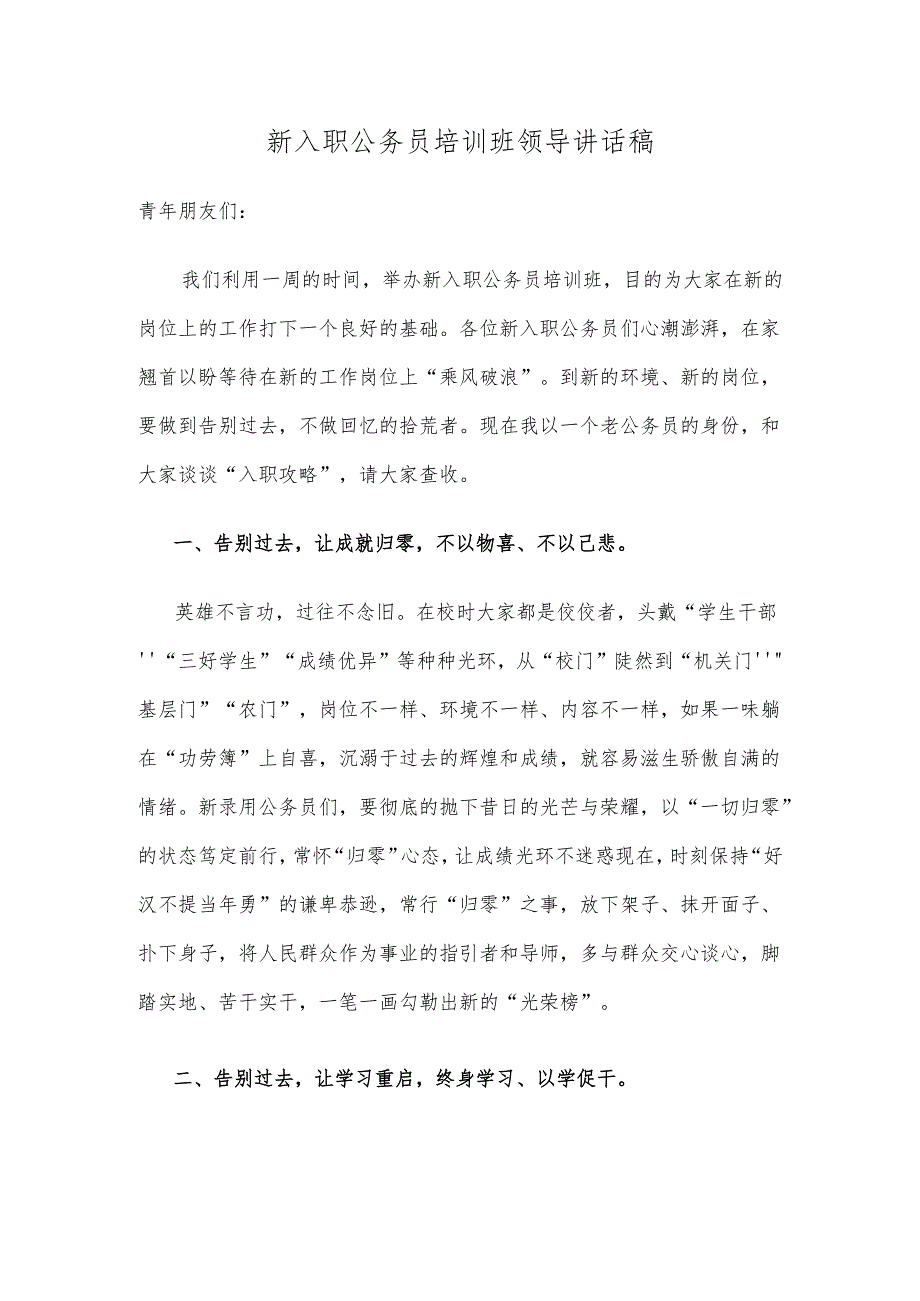 新入职公务员培训班领导讲话稿
青年朋友们：
我们利用一周的时间，举办新入职公务员培训班，目的为大家在新的
岗位上的工作打下一个良好的基础。各位新入职公务员们心潮澎湃，在家
翘首以盼等待在新的工作岗位上“乘风破浪”。到新的环境、新的岗位，
要做到告别过去，不做回忆的拾荒者。现在我以一个老公务员的身份，和
大家谈谈“入职攻略”，请大家查收。
一、告别过去，让成就归零，不以物喜、不以己悲。
英雄不言功，过往不念旧。在校时大家都是佼佼者，头戴“学生干部
''“三好学生”“成绩优异”等种种光环，从“校门”陡然到“机关门''"
基层门”“农门”，岗位不一样、环境不一样、内容不一样，如果一味躺
在“功劳簿”上自喜，沉溺于过去的辉煌和成绩，就容易滋生骄傲自满的
情绪。新录用公务员们，要彻底的抛下昔日的光芒与荣耀，以“一切归零”
的状态笃定前行，常怀“归零”心态，让成绩光环不迷惑现在，时刻保持“好
汉不提当年勇”的谦卑恭逊，常行“归零”之事，放下架子、抹开面子、
扑下身子，将人民群众作为事业的指引者和导师，多与群众交心谈心，脚
踏实地、苦干实干，一笔一画勾勒出新的“光荣榜”。
二、告别过去，让学习重启，终身学习、以学促干。